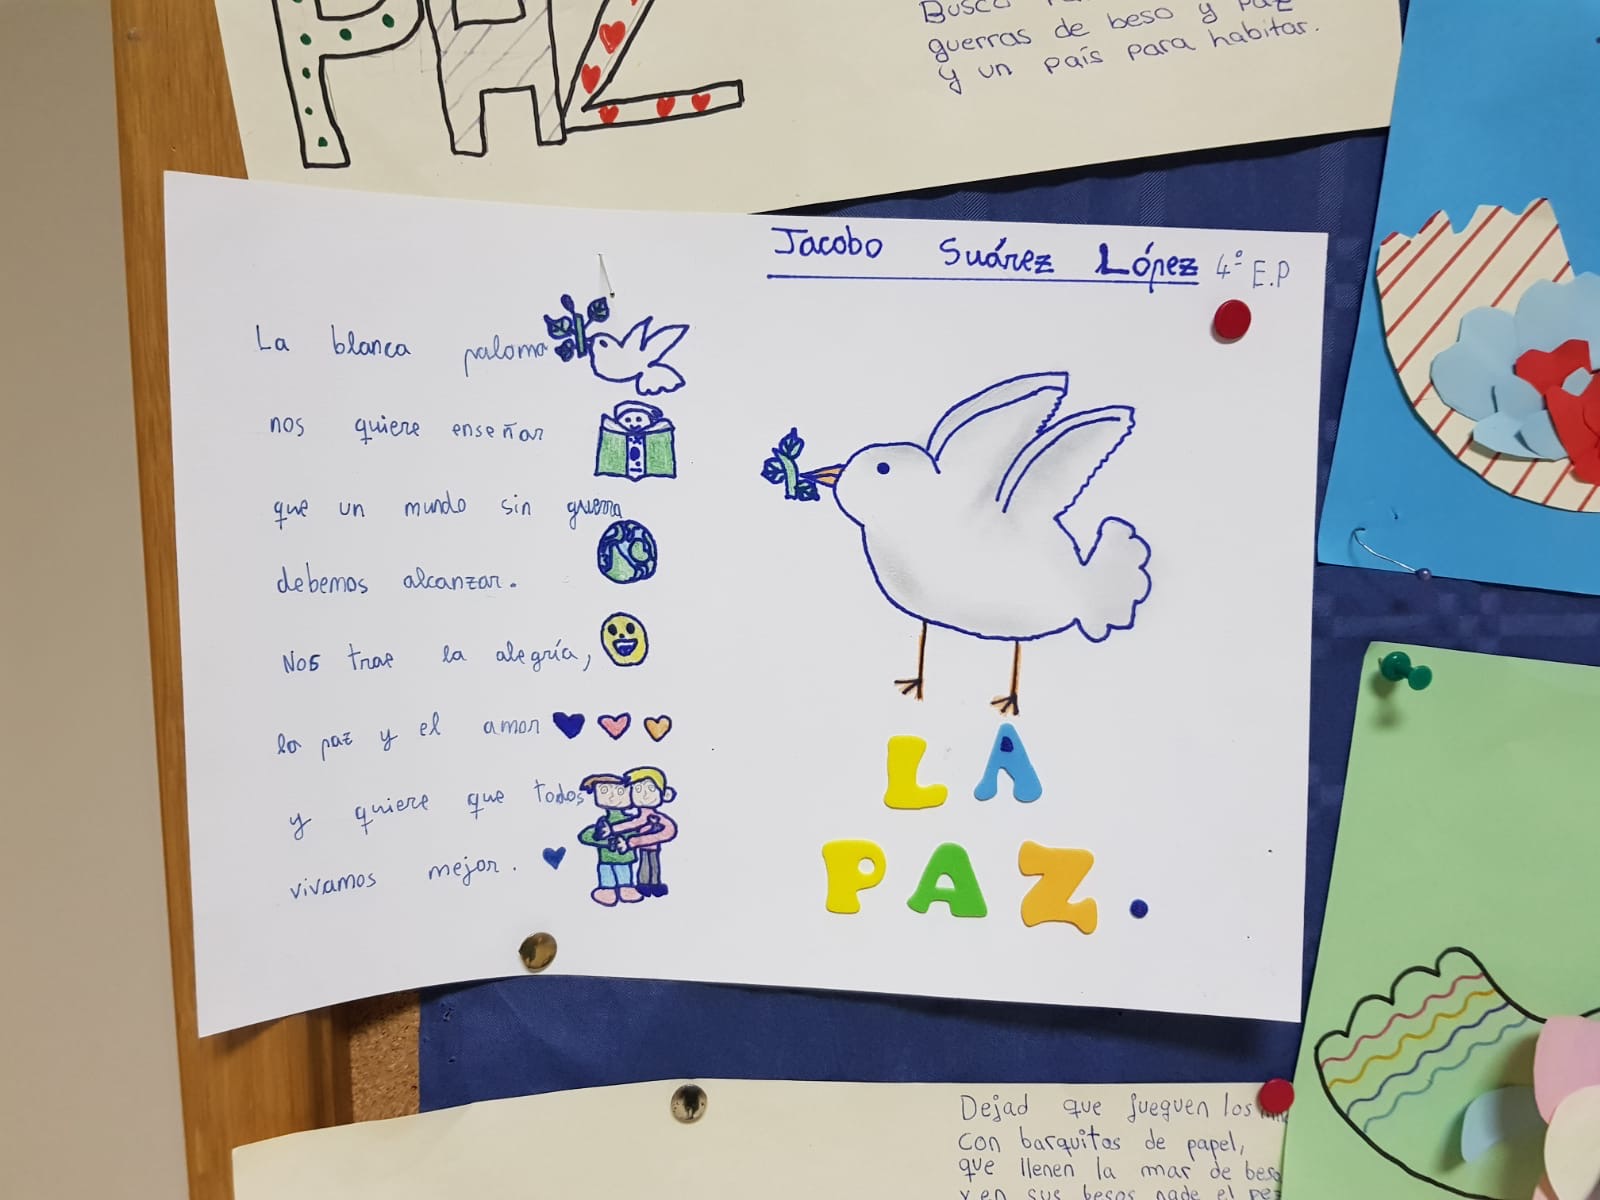 PAZ
guerras de beso y paz
y un país para habitar.
Jacobo Suárez López 4º E.P
La blanca paloma
nos quiere enseñar
que un mundo sin guerra
debemos alcanzar.
Nos trae la alegría,
la paz y el amor
y quiere que todos
vivamos mejor.
LA
PAZ.
Dejad que jueguen los
con barquitos de papel,
que llenen la mar de
y en sus besos nade el pez